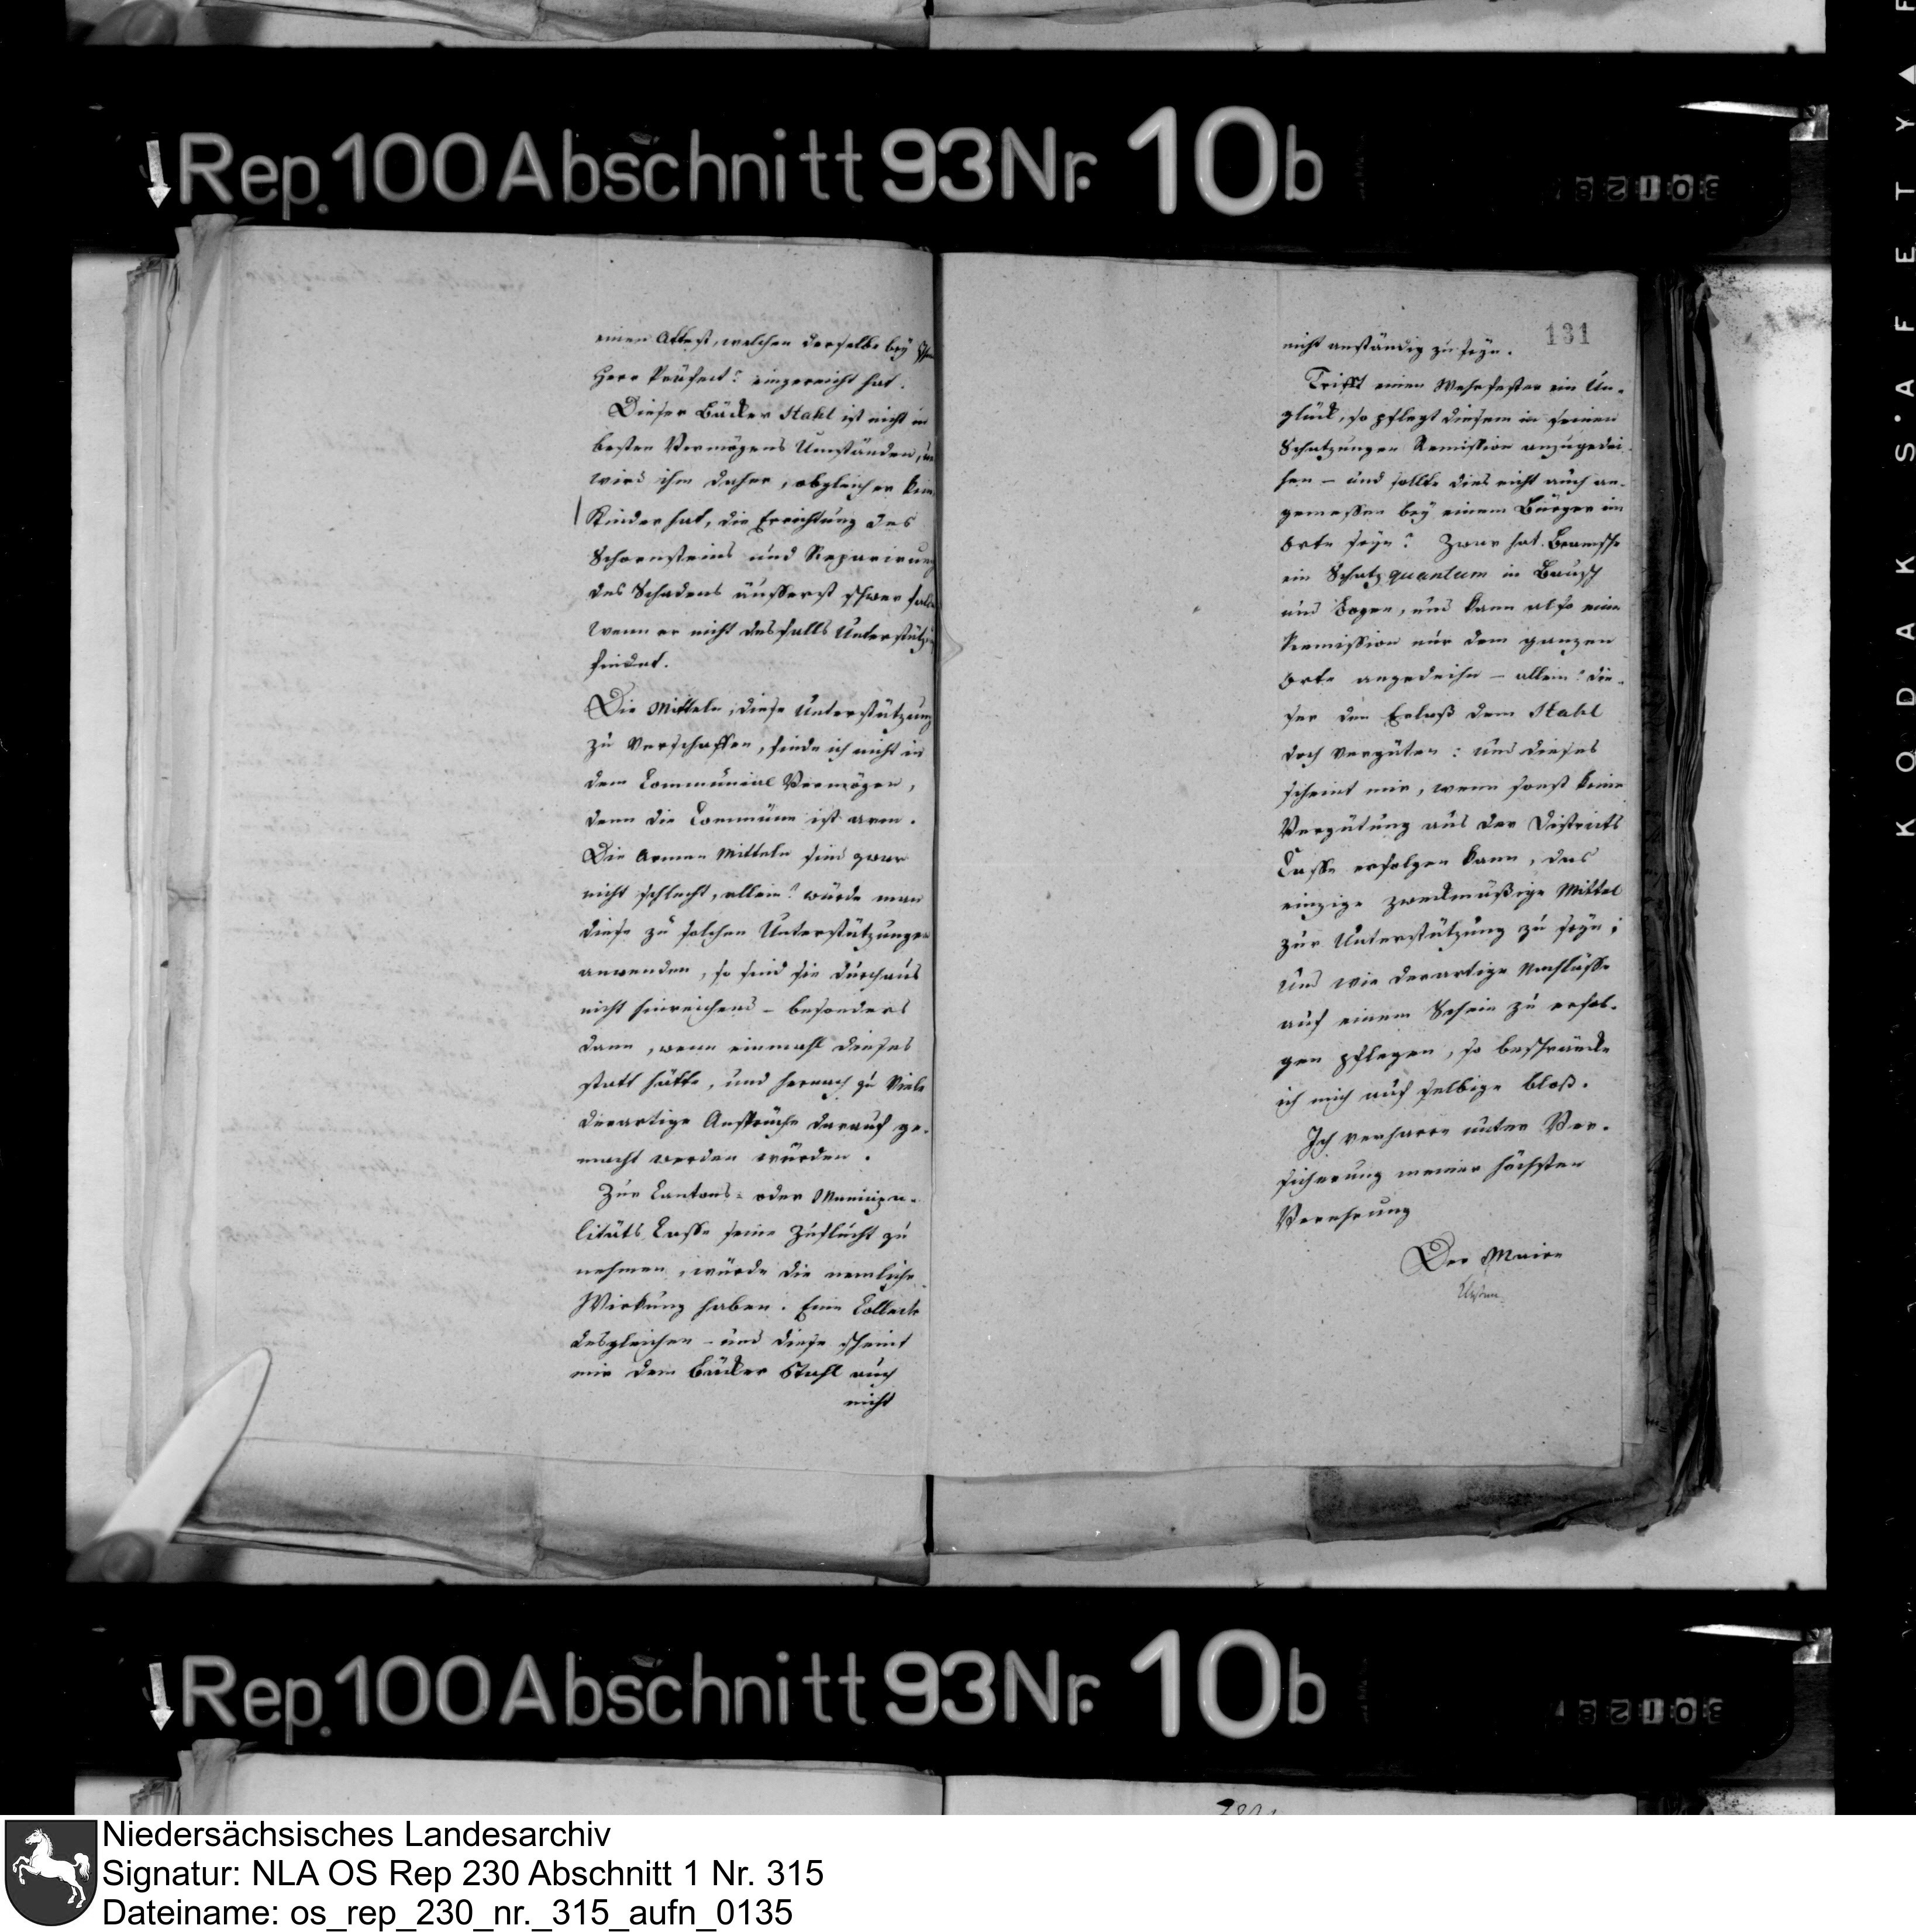 Rep. 100 Abschnitt 93 Nr. 10b
einen Attest, welchen derselbe bey
Herr Präfect! eingereicht hat.
Dieser Bäcker Stahl ist nicht in
besten Vermögens Umständen,
wird ihm daher, obgleich er kein
Kinder hat, die Errichtung des
Schornsteins und Reparirung
des Schadens äusserst schwer
wenn er nicht desfalls Unterstütz
findet.
Die Mitteln, diese Unterstützung
zu verschaffen, finde ich nicht in
dem Communial Vermögen,
denn die Commüne ist arm.
Die Armen Mitteln sind zwar
nicht schlecht, allein! würde man
diese zu solchen Unterstützungen
anwenden, so sind sie durchaus
nicht hinreichend - besonders
dann, wenn einmahl dieses
statt hätte, und hernach zu viele
derartige Ansprüche darauf ge-
macht werden würden.
Zur Cantons- oder Municipa-
litäts Casse seine Zuflucht zu
nehmen, würde die nemliche
Wirkung haben. Eine Collecte
desgleichen - und diese scheint
mir dem Bäcker Stahl auch
nicht
131
nicht anständig zu seyn.
Trifft einen Wehrfester ein Un-
glück, so pflegt diesem in seinen
Schatzungen Remission anzugedei-
hen - und sollte dies nicht auch an-
gemessen bey einem Bürger im
Orte seyn? Zwar hat Bramsche
ein Schatzquantum in Bausch
und Bogen, und kann also eine
Remission nur dem ganzen
Orte angedeihn - allein! die-
ser den Erlaß dem Stahl
doch vergüten: und dieses
scheint mir, wenn sonst keine
Vergütung aus der Districts
Casse erfolgen kann, das
einzige zweckmäßige Mittel
zur Unterstützung zu seyn;
und wie derartige Nachlässe
auf einem Schein zu erfol-
gen pflegen, so beschränke
ich mich auf selbige bloß.
Ich verharre unter Ver-
sicherung meiner höchsten
Verehrung
Der Maire
Rep. 100 Abschnitt 93 Nr. 10b
KODAK S'AFETY
Niedersächsisches Landesarchiv
Signatur: NLA OS Rep 230 Abschnitt 1 Nr. 315
Dateiname: os_rep_230_nr._315_aufn_0135